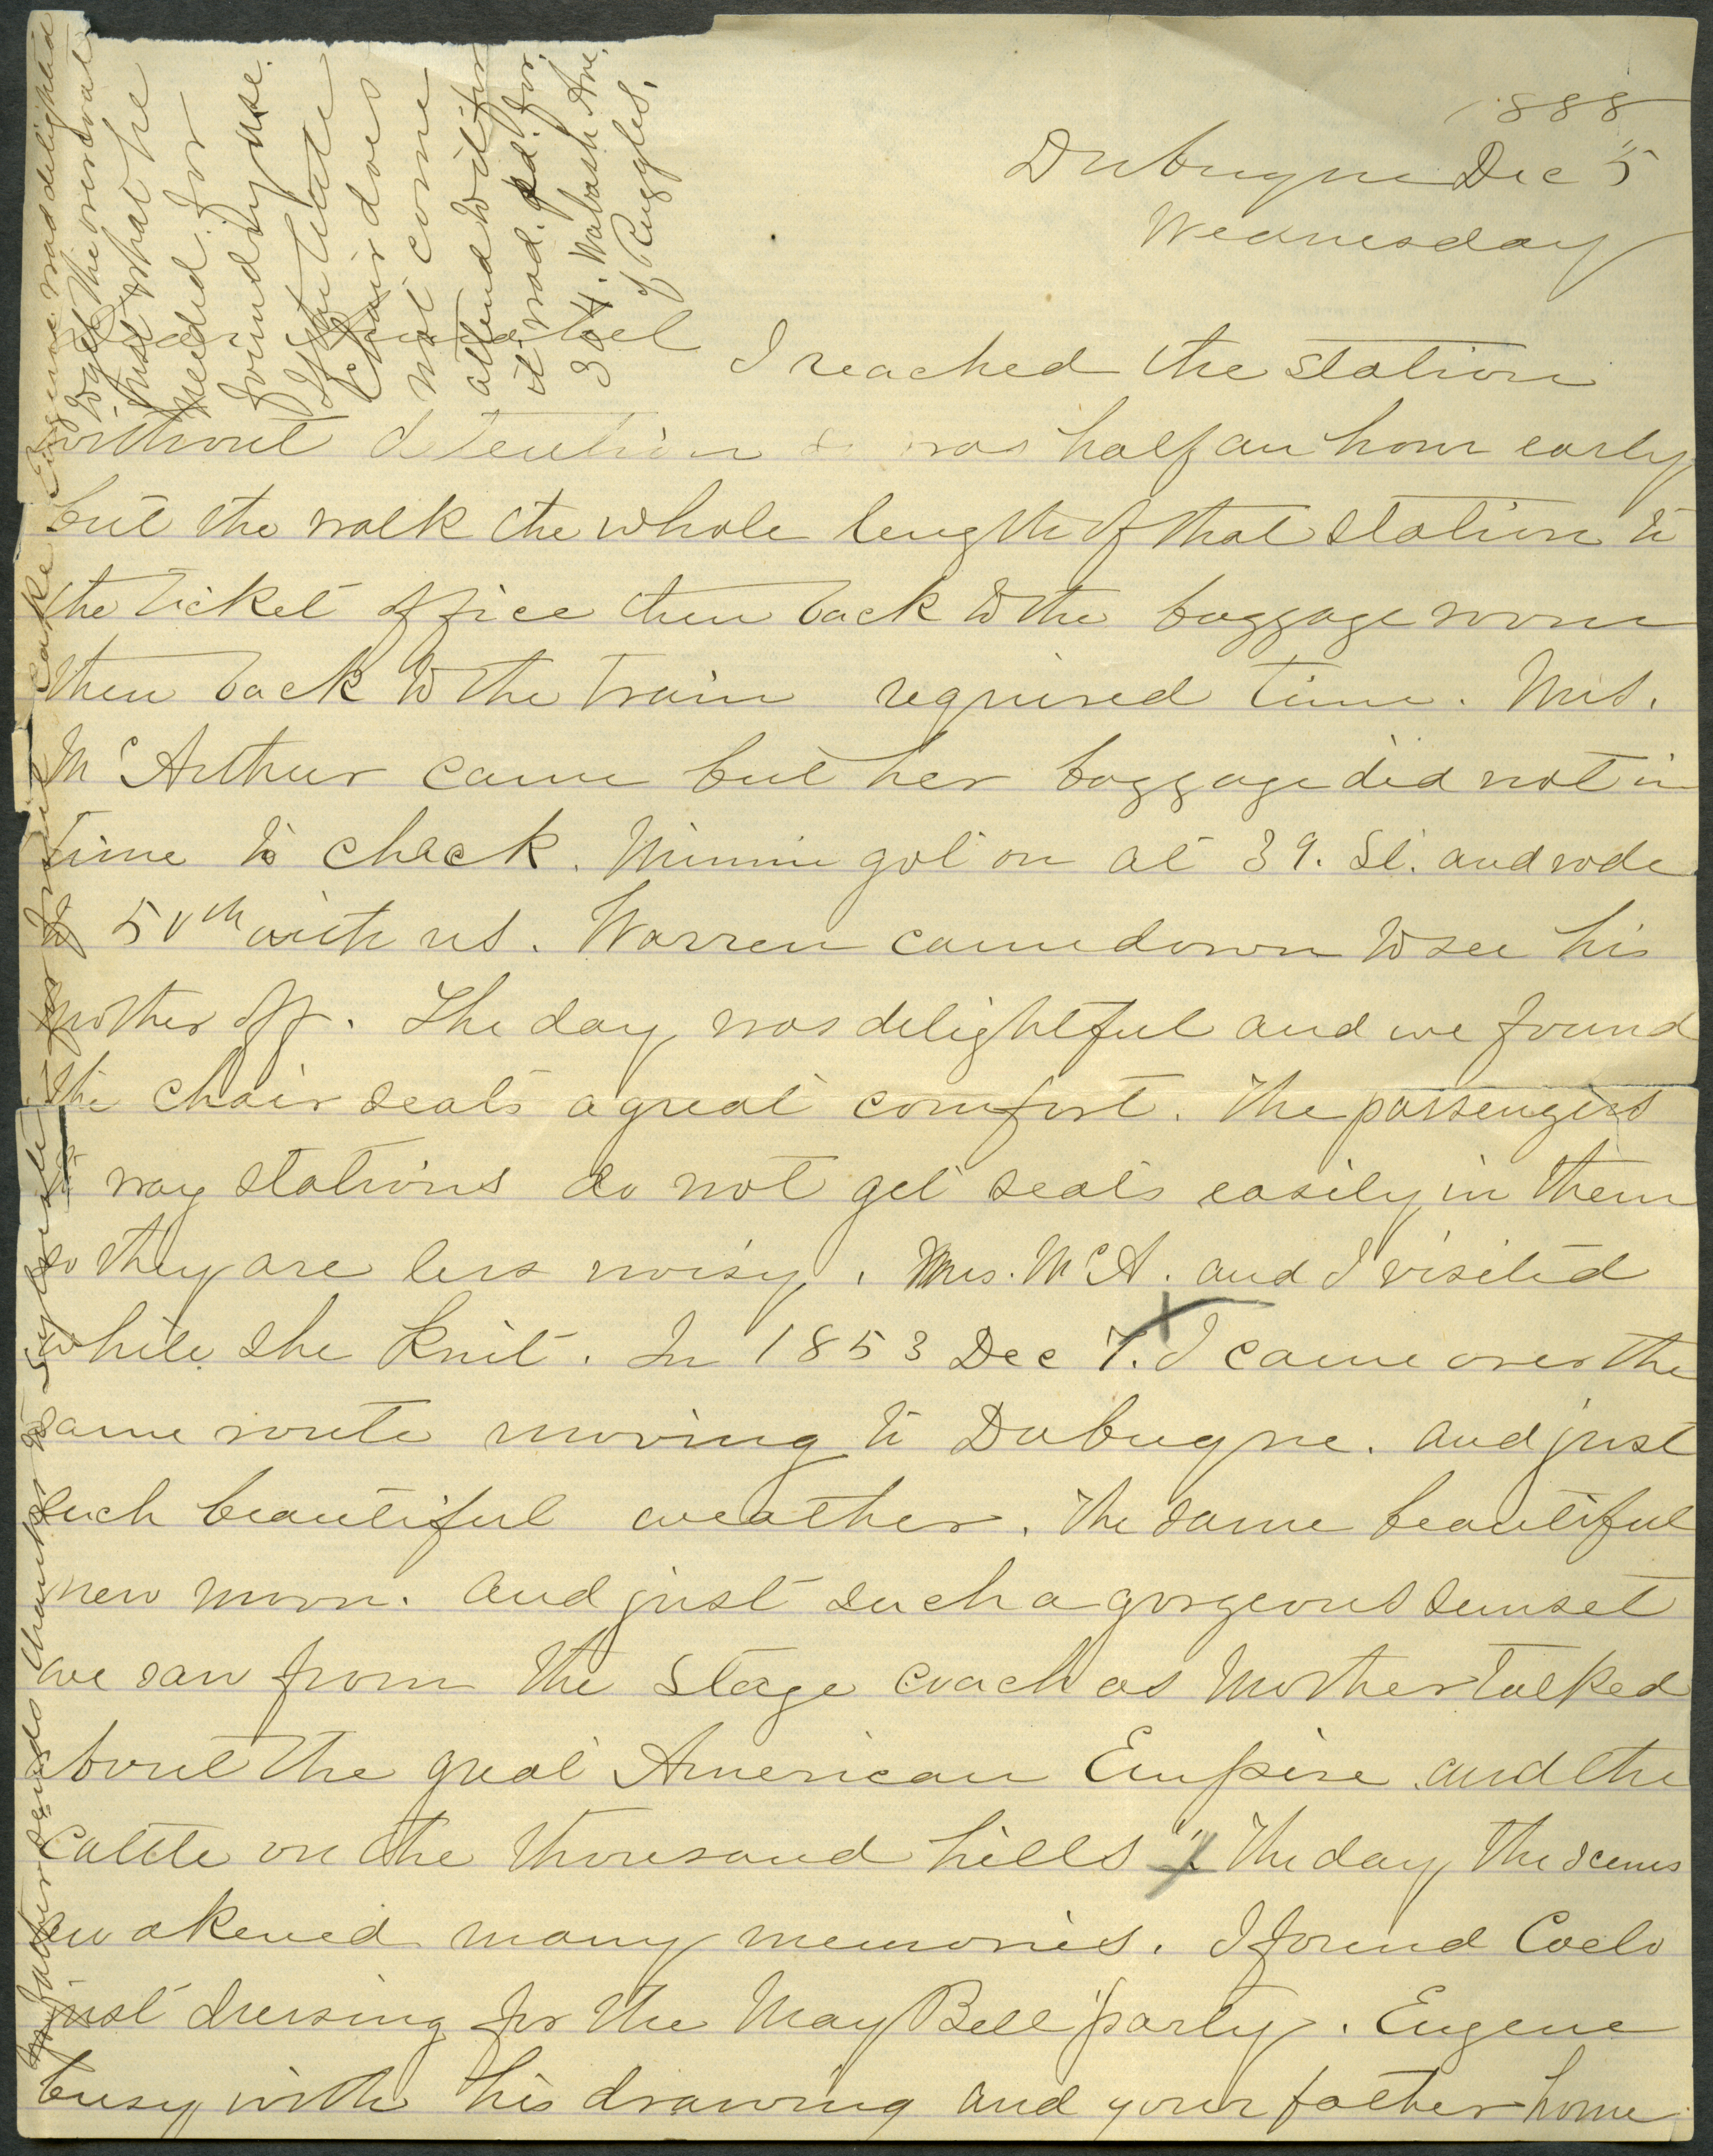 1888
Dubuque Dec 5
Wednesday
Dear
I reached the station
without detention & was half an hour early
but the walk the whole length of that station to
the ticket office then back to the baggage room
then back to the train required time. Mrs.
McArthur came but her baggage did not in
time to check. Minnie got on at 39. St. and rode
to 50th with us. Warren came down to see his
mother off. The day was delightful and we found
the chair seats a great comfort. The passengers
way stations do not get seats easily in them
so they are less noisy. Mrs. McA. and I visited
while she knit. In 1853 Dec 7. I came over the
same route moving to Dubuque. and just
such beautiful weather. The same beautiful
new moon. and just such a gorgeous sunset
we saw from the stage coach as Mother talked
about the great American Empire and the
cattle on the thousand hills". The day, the scenes
awakened many memories. I found Coelo
just dressing for the May Bell party. Eugene
busy with his drawing and your father home
father sends thanks to Sylvester for fruit cake Eugene was delighted
to get the overcoat
just what he
needed for
foundry use.
If the little
chair does
not come
attend to it for
it was pd. for.
304. Wabash Ave.
of Ruggles.